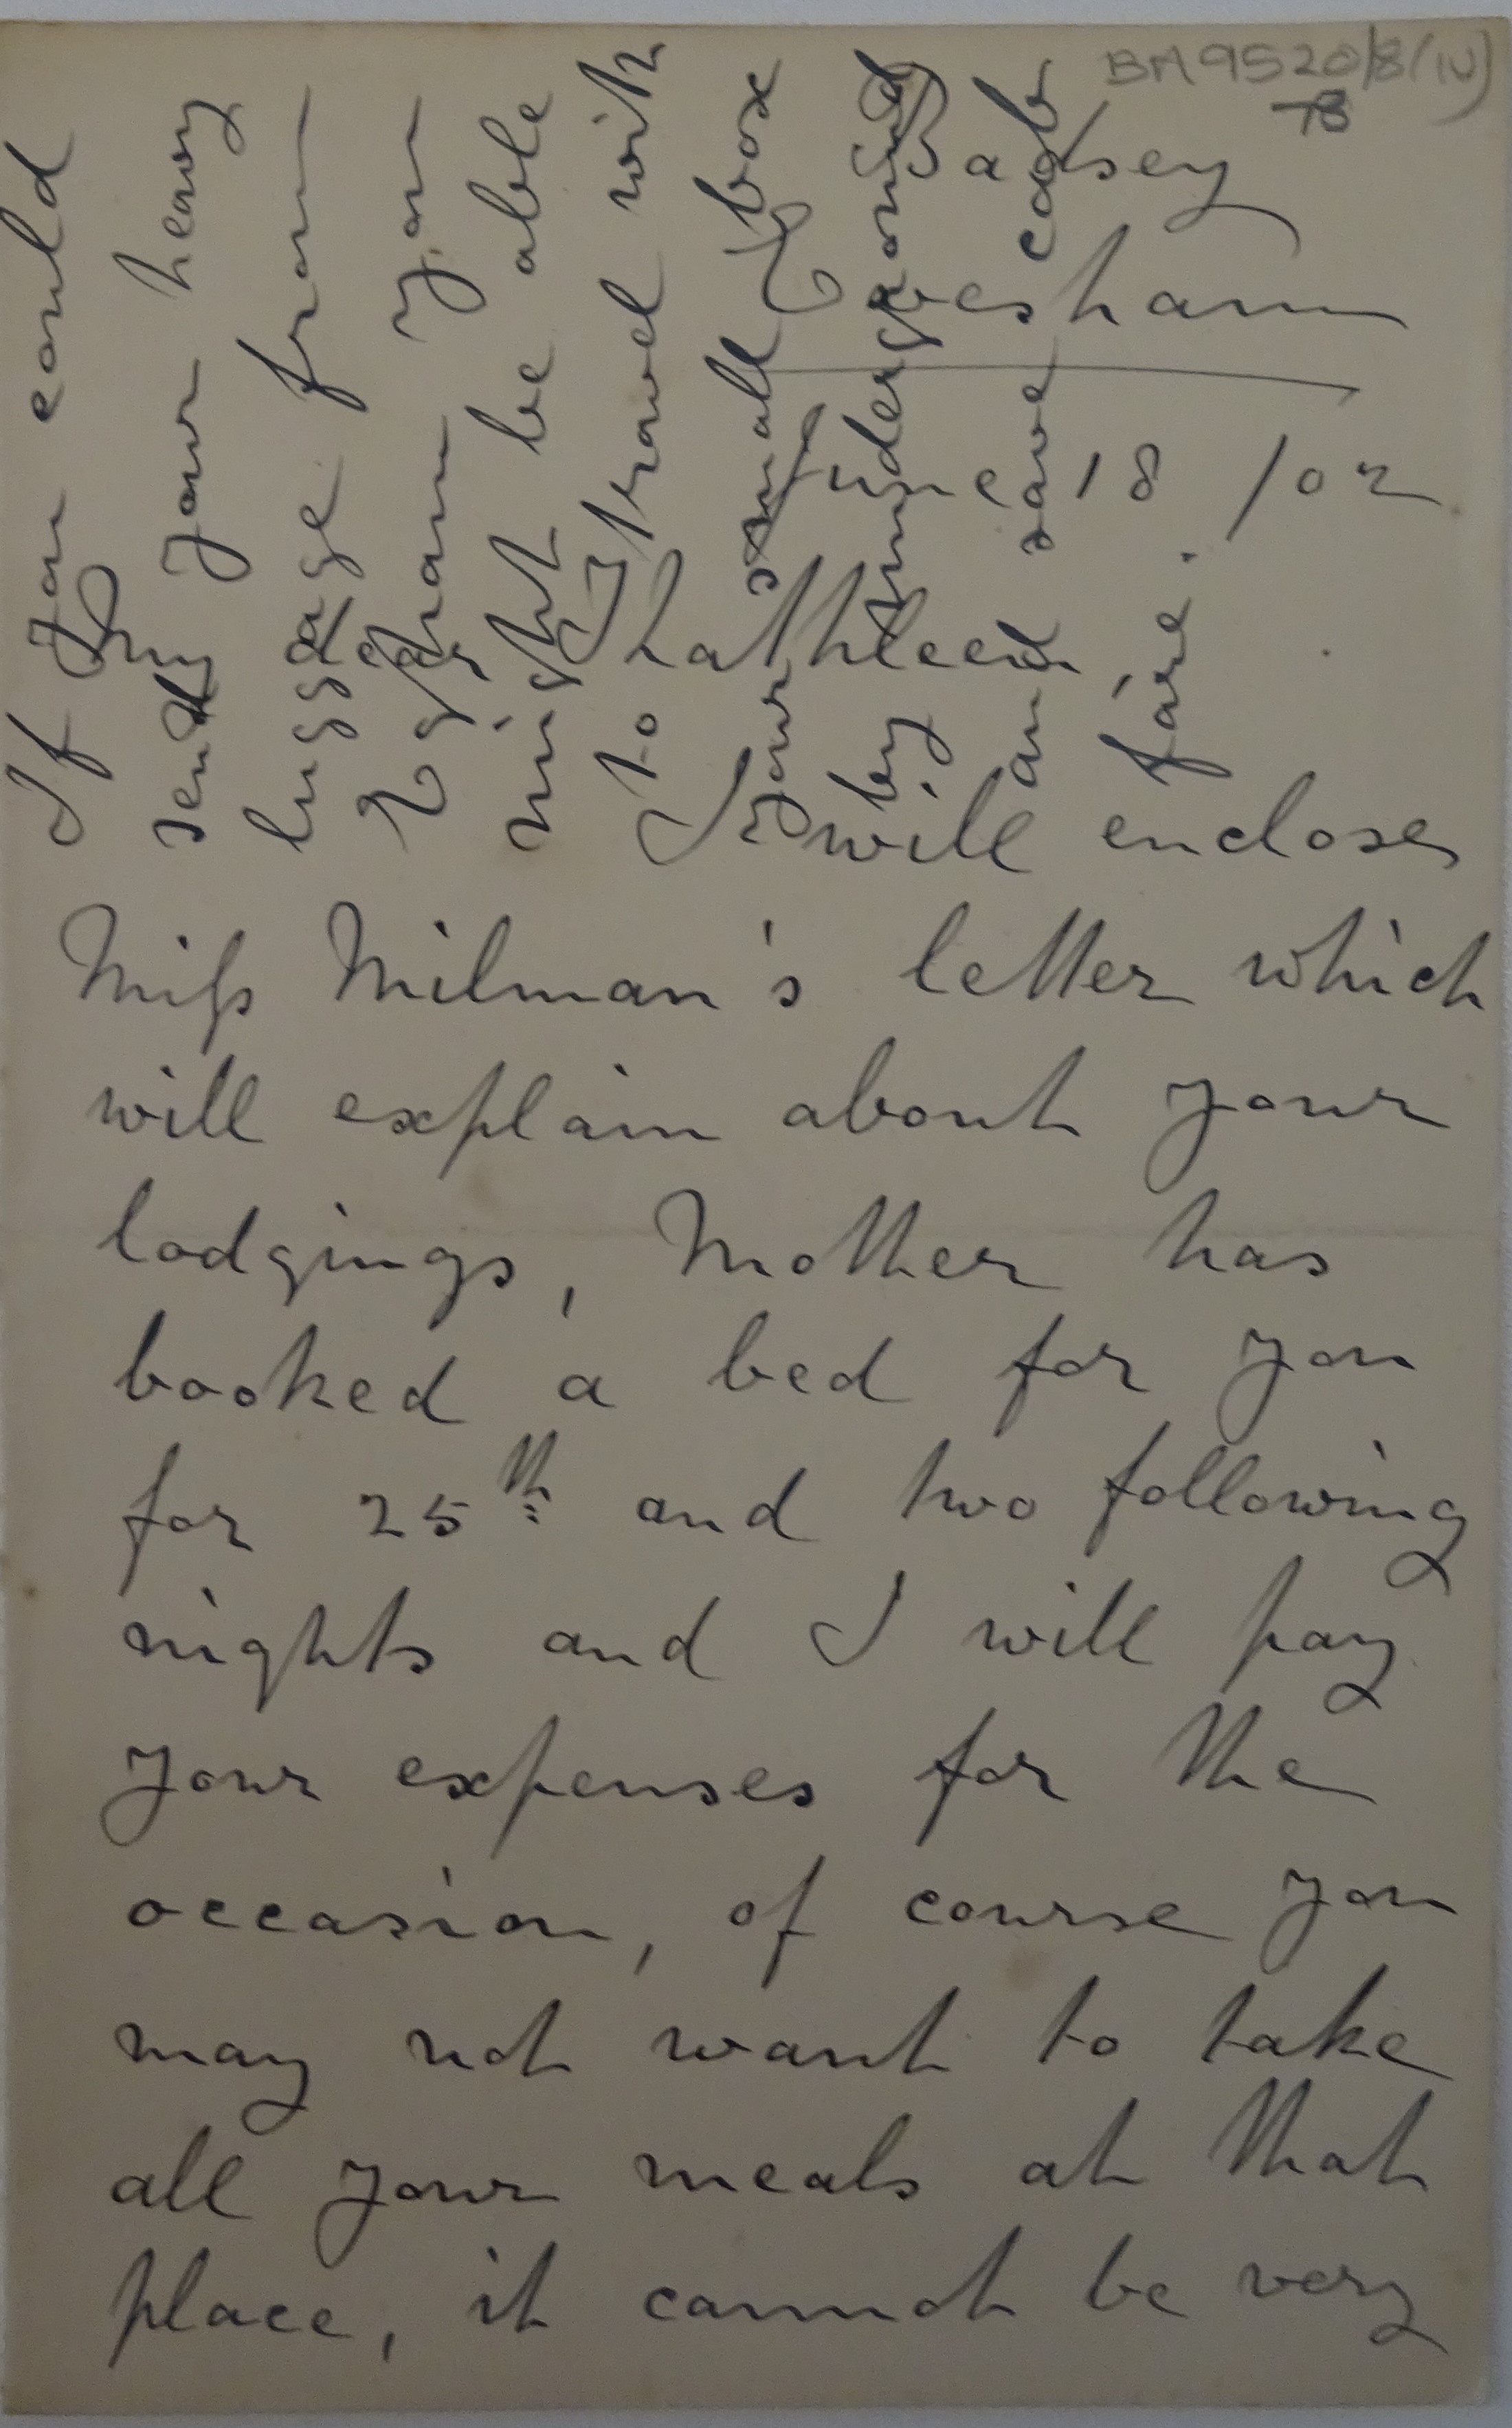 BA9520/8(IV)
78
Badsey
Evesham
June 18 /02
My dear Kathleen,
I will enclose
Miss Milman's letter which
will explain about your
lodgings, Mother has
booked a bed for you
for 25th and two following
nights and I will pay
your expenses for the
occasion, of course you
may not want to take
all your meals at that
place, it cannot be very
If you could
send your heavy
luggage from
Egham you
might be able
to travel with
your small box
by underground
and save cab
fare.